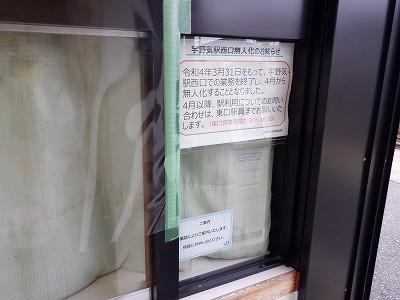 宇野気駅西口無人化のお知らせ
令和4年3月31日をもって、宇野気
駅西口での業務を終了し、4月から
無人化することとなりました。
4月以降、駅利用についてのお問い
合わせは、東口駅員までお願いいた
します。
ご案内